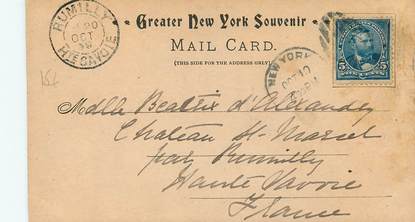 Greater New York Souvenir
MAIL CARD.
(THIS SIDE FOR THE ADDRESS ONLY)
RUMILLY
20
OCT
HTE SAVOIE
NEW YORK
OCT 10
5
5
Mdlle Beatrix d'Alexandry
Chateau St Marcel
par Rumilly
Haute Savoie
France